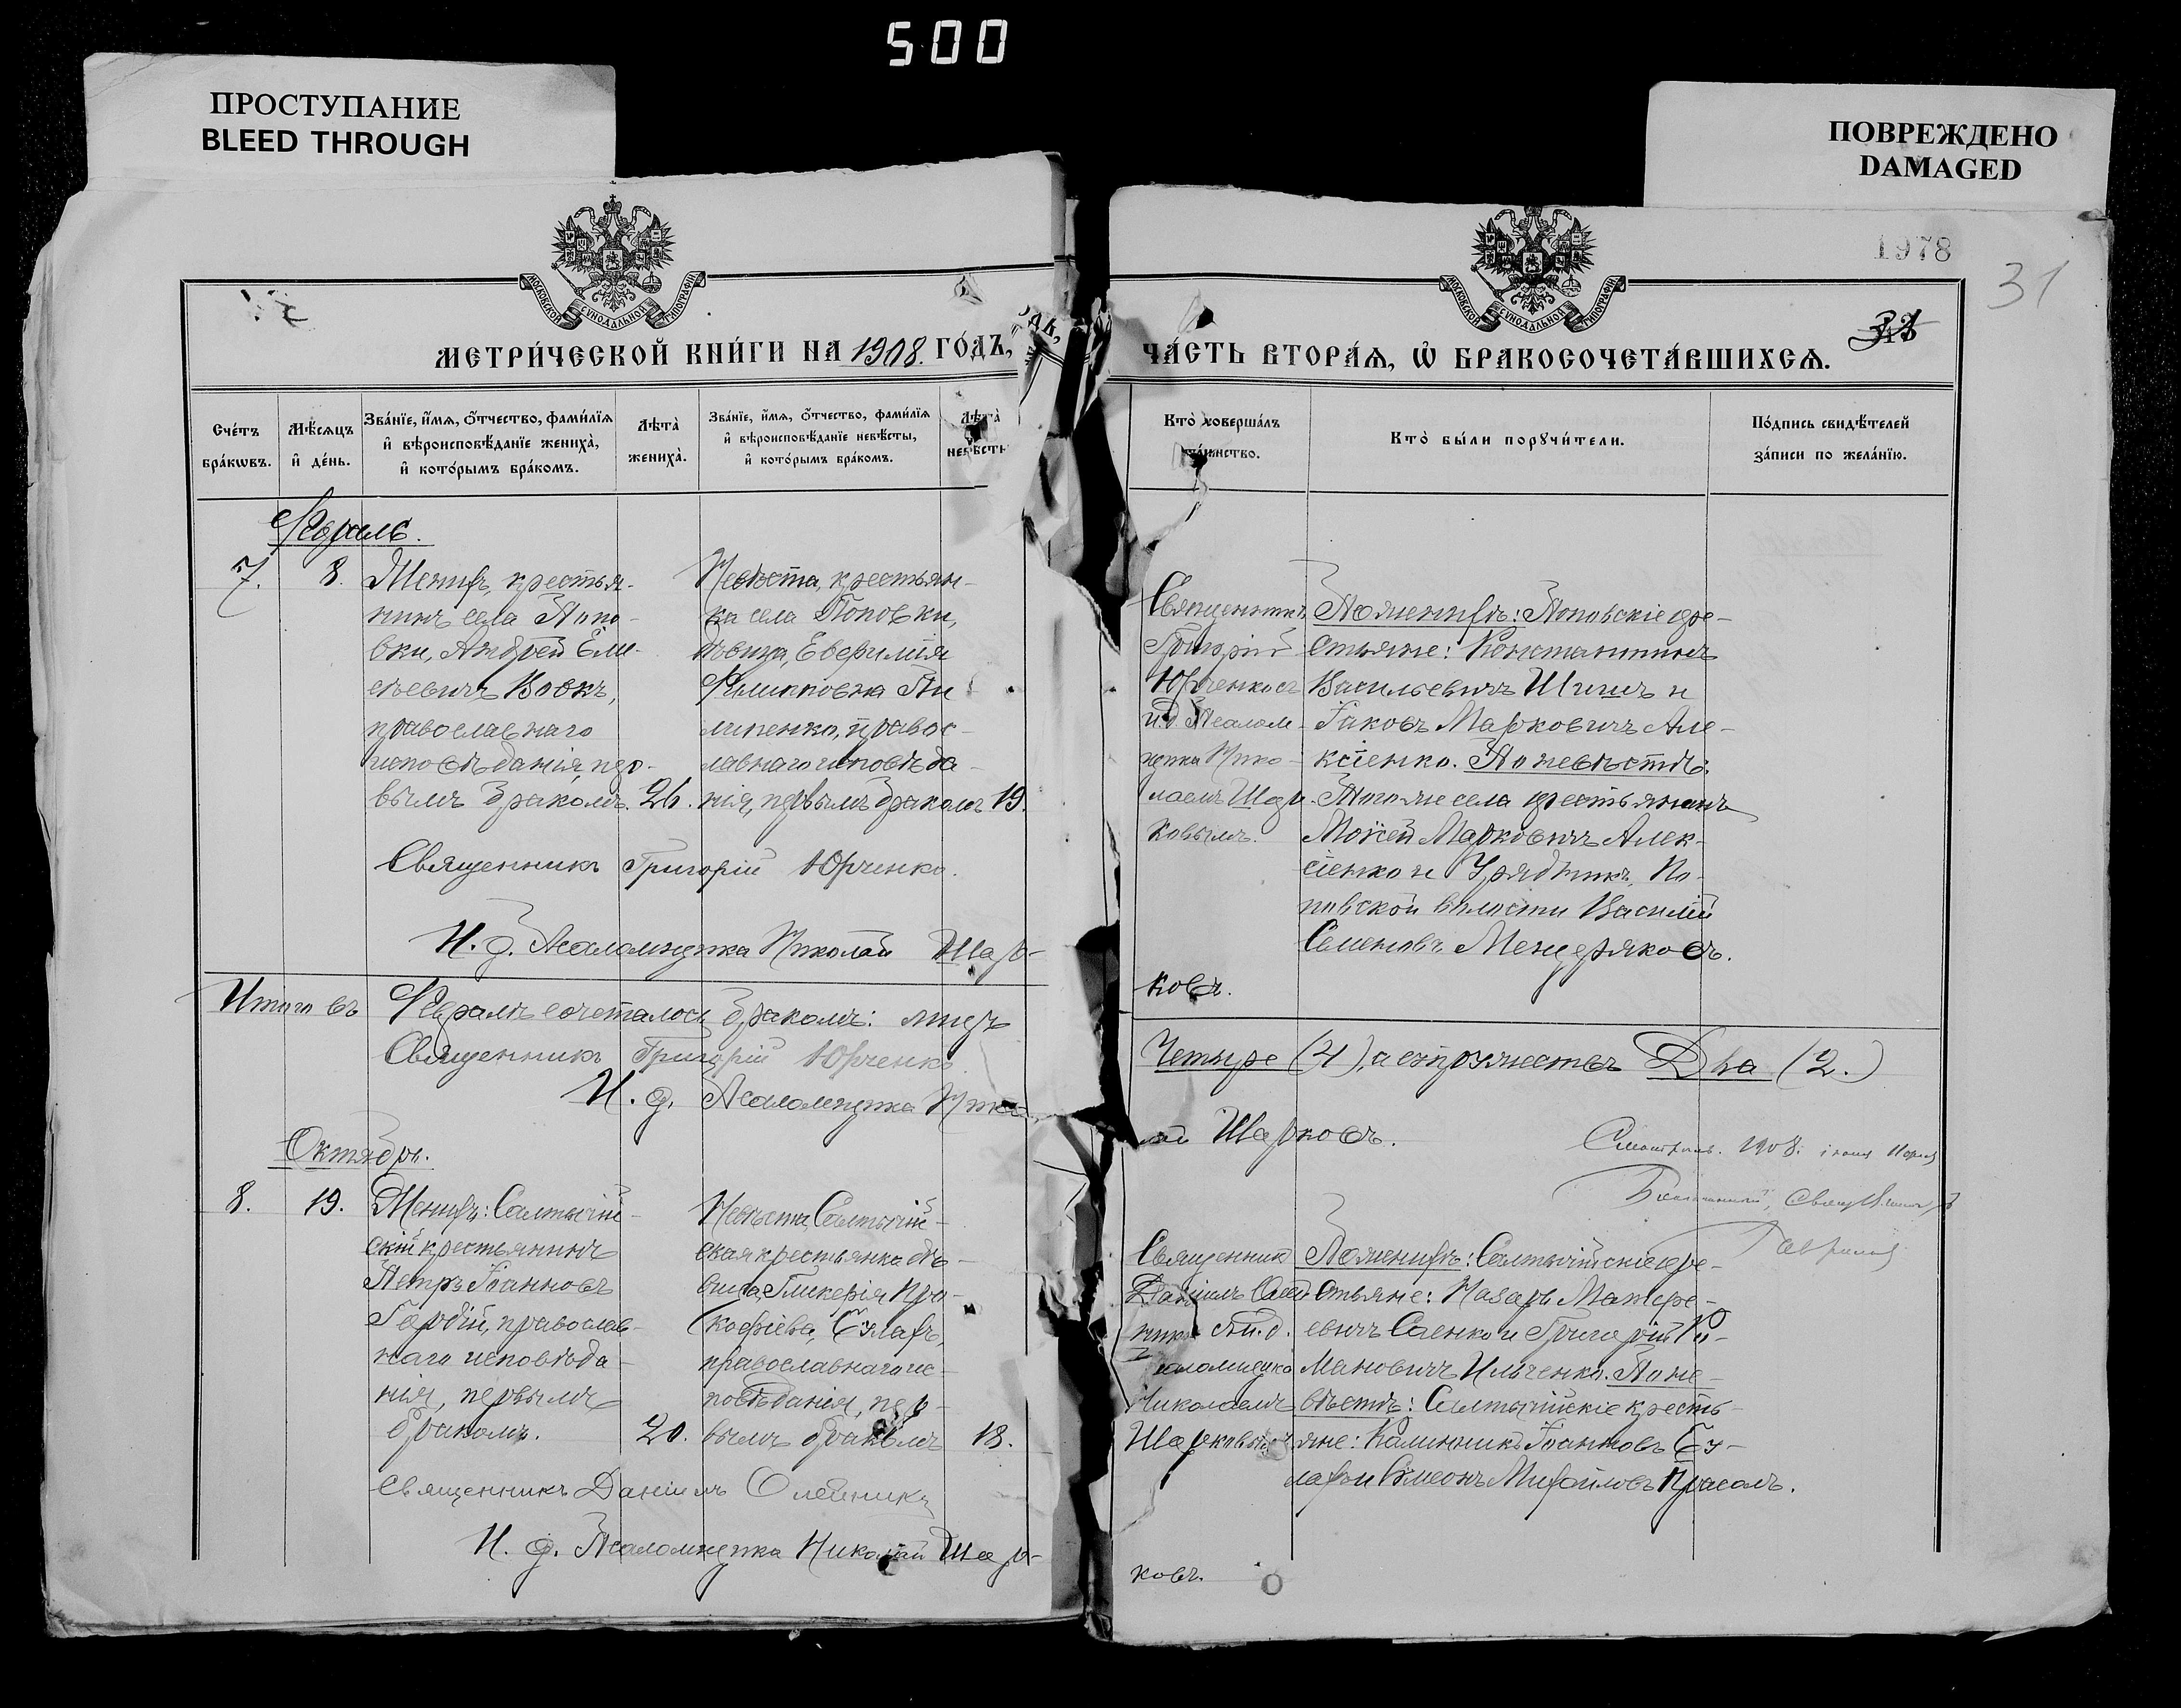 500
ПРОСТУПАНИЕ
BLEED THROUGH
ПОВРЕЖДЕНО
DAMAGED
1978
31
МОСКОВСКОЙ СѴНОДАЛЬНОЙ ТИПОГРАФІИ
МОСКОВСКОЙ СѴНОДАЛЬНОЙ ТИПОГРАФІИ
МЕТРИ́ЧЕСКОЙ КНИ́ГИ НА 1908. ГО́ДЪ,
ЧА́СТЬ ВТОРА́Ѧ, Ѡ҆ БРАКОСОЧЕТА́ВШИХСѦ.
Сче́тъ бра́кѡвъ.
Мѣ́сяцъ и҆ де́нь.
Зва́нїе, и҆́мѧ, ѻ҆́тчество, фами́лїѧ и҆ вѣроисповѣ́данїе жениха̀, и҆ кото́рымъ бра́комъ.
Лѣта̀ жениха̀.
Зва́нїе, и҆́мѧ, ѻ҆́тчество, фами́лїѧ и҆ вѣроисповѣ́данїе невѣ́сты, и҆ кото́рымъ бра́комъ.
Лѣта̀ невѣсты
Кто̀ соверша́лъ та́инство.
Кто̀ бы́ли порꙋчи́тели.
По́дпись свидѣ́телей за́писи по жела́нїю.
Февраль.
7. 8.
Женихъ, крестья-
нинъ села Попо-
вки, Андрей Ели-
сѣевичъ Вовкъ,
православнаго
исповѣданія, пер-
вымъ бракомъ. 26.
Невѣста, крестьян-
ка села Поповки,
дѣвица, Евфимія
Филипповна Пи-
липенко, правос-
лавнаго исповѣда-
нія, первымъ бракомъ 19.
Священникъ
Григорій
Юрченко съ
и.д. Псалом-
щика Нико-
лаемъ Шар-
ковымъ.
По женихѣ: Поповскіе кре-
стьяне: Константинъ
Васильевичъ Шишъ и
Іаковъ Марковичъ Але-
ксіенко. По невѣстѣ:
Того же села крестьянинъ
Моѵсей Марковичъ Алек-
сіенко и Урядникъ По-
повской волости Василій
Семеновъ Мещеряковъ.
Священникъ Григорій Юрченко.
И. д. Псаломщика Николай Шар-
ковъ.
Итого въ Февралѣ сочеталось бракомъ: лицъ
Четыре (4), а супружествъ Два (2.)
Священникъ Григорій Юрченко.
И. д. Псаломщика Нико-
лай Шарковъ.
Смотрѣлъ. 1908. іюня
Октябрь.
8. 19.
Женихъ: Салтычій-
скій крестьянинъ
Петръ Іоанновъ
Гордій, православ-
наго исповѣда-
нія, первымъ
бракомъ. 20.
Невѣста Салтычій-
ская крестьянка дѣ-
вица, Гликерія Про-
кофіева, Сулафъ,
православнаго ис-
повѣданія, пер-
вымъ бракомъ 18.
Священник
Даніилъ Олей-
никъ съ и.д.
Псаломщика
Николаемъ
Шарковымъ
По женихѣ: Салтычійскіе кре-
стьяне: Назаръ Матфе-
евичъ Саенко и Григорій Ро-
мановичъ Ильченко. По не-
вѣстѣ: Салтычійскіе кресть-
яне: Калинникъ Іоанновъ Су-
лафъ и Симеонъ Михайловъ Прасолъ.
Священникъ Даніилъ Олейникъ
И. д. Псаломщика Николай Шар-
ковъ.